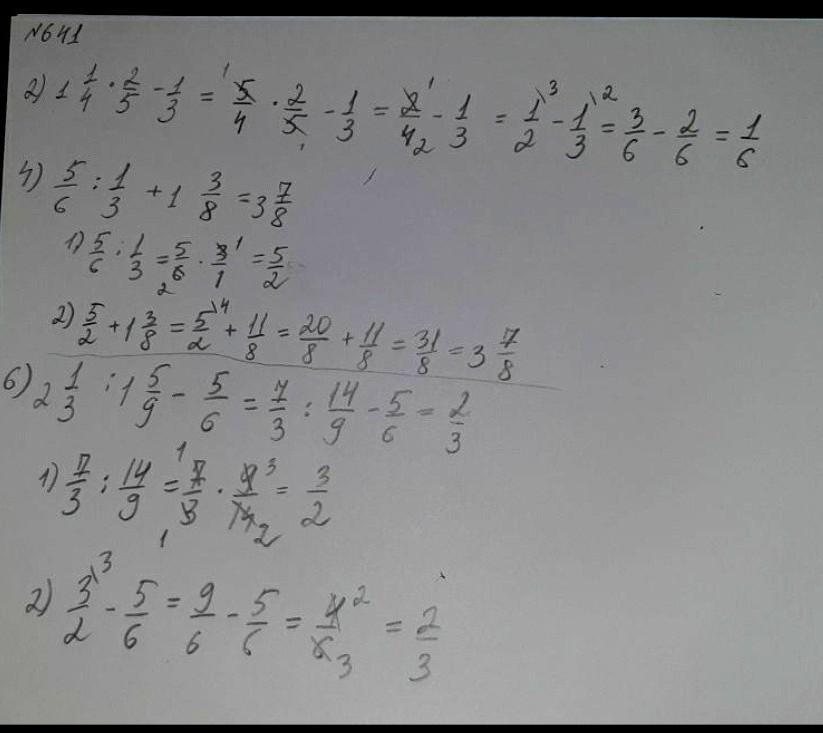 №641
2) 1 1/4 · 2/5 - 1/3 = 5/4 · 2/5 - 1/3 = 2/4 - 1/3 = 1/2 \3 - 1/3 \2 = 3/6 - 2/6 = 1/6
4) 5/6 : 1/3 + 1 3/8 = 3 7/8
1) 5/6 : 1/3 = 5/6 · 3/1 = 5/2
2) 5/2 + 1 3/8 = 5/2 \4 + 11/8 = 20/8 + 11/8 = 31/8 = 3 7/8
6) 2 1/3 : 1 5/9 - 5/6 = 7/3 : 14/9 - 5/6 = 2/3
1) 7/3 : 14/9 = 7/3 · 9/14 = 3/2
2) 3/2 \3 - 5/6 = 9/6 - 5/6 = 4/6 = 2/3